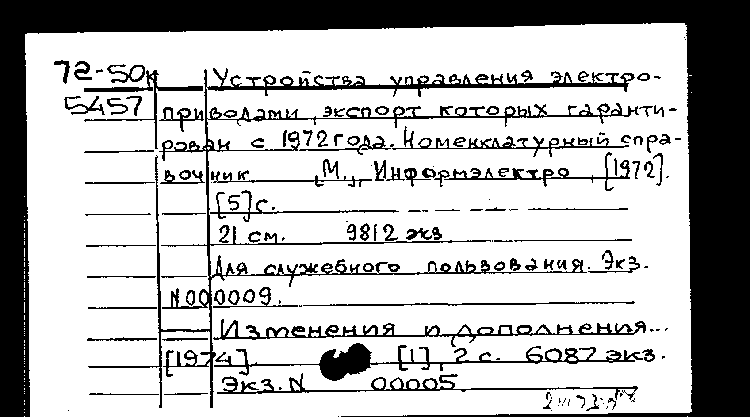 72-50к Устройства управления электро-
5457 приводами, экспорт которых гаранти-
рован с 1972 года. Номенклатурный спра-
вочник. [М.], Информэлектро, [1972].
[5] с.
21 см. 9812 экз.
Для служебного пользования. Экз.
N000009.
— Изменения и дополнения...
[1974]. [1], 2 с. 6087 экз.
Экз. N 00005.